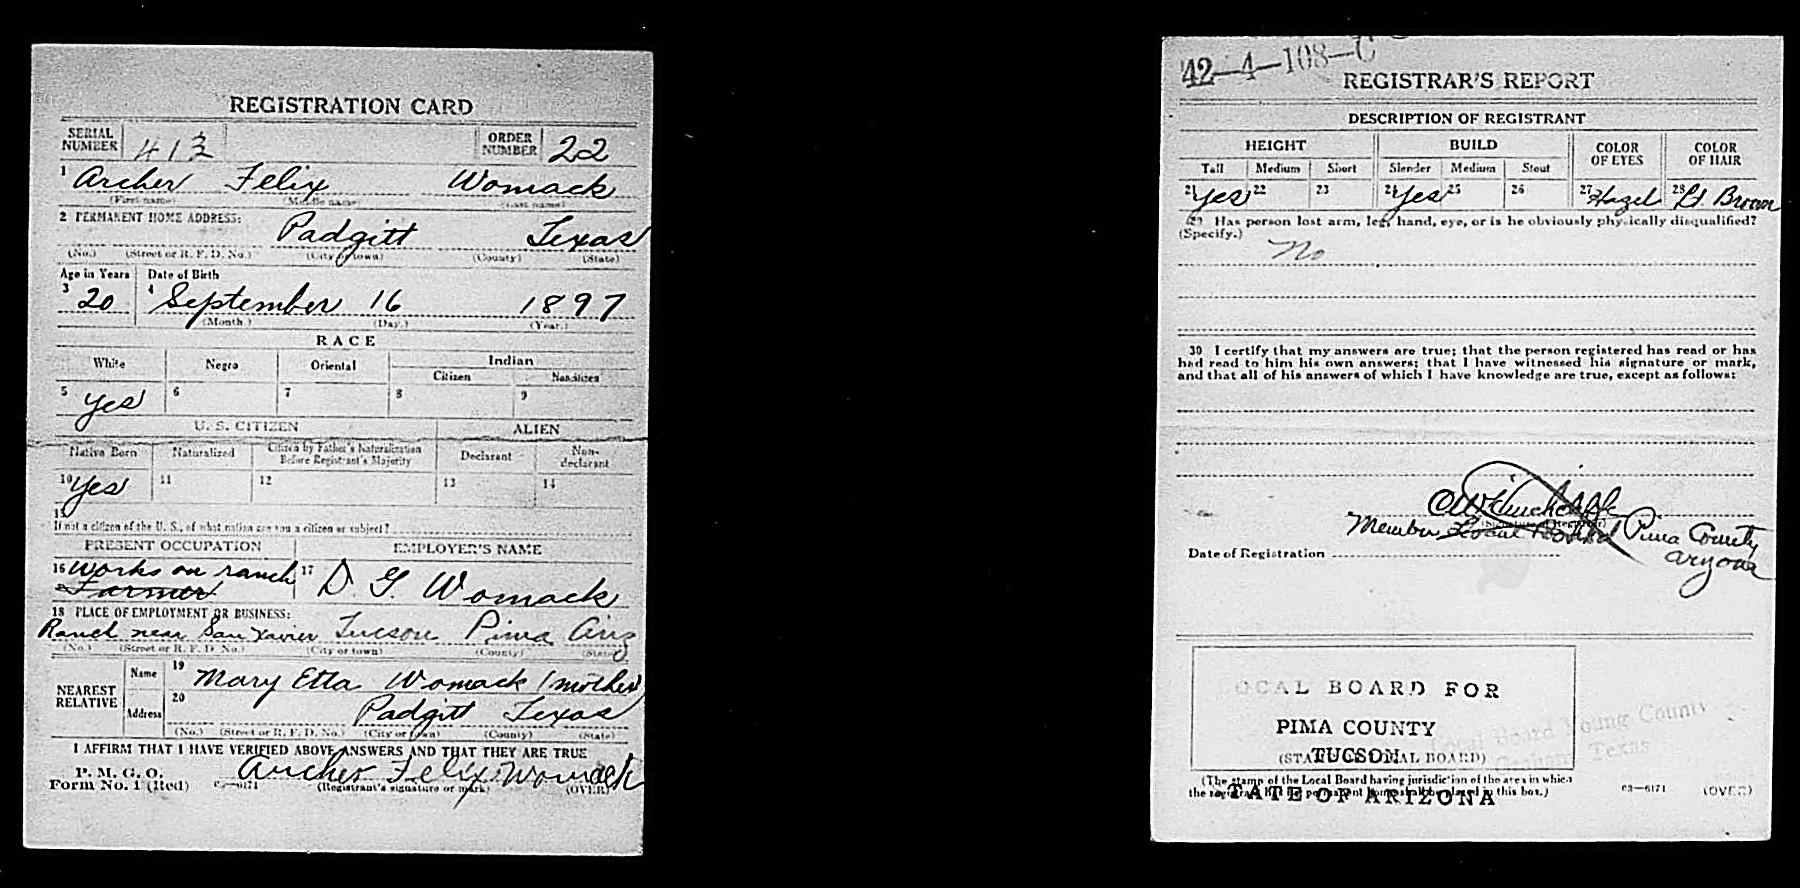 REGISTRATION CARD
SERIAL NUMBER 413 ORDER NUMBER 22
1 Archer Felix Womack
(First name) (Middle name) (Last name)
2 PERMANENT HOME ADDRESS:
Padgitt Texas
(No.) (Street or R. F. D. No.) (City or town) (County) (State)
Age in Years Date of Birth
3 20 4 September 16 1897
(Month.) (Day.) (Year.)
RACE
White Negro Oriental Indian
Citizen Noncitizen
5 Yes 6 7 8 9
U. S. CITIZEN ALIEN
Native Born Naturalized Citizen by Father's Naturalization Before Registrant's Majority Declarant Non-declarant
10 Yes 11 12 13 14
15
If not a citizen of the U. S., of what nation are you a citizen or subject?
PRESENT OCCUPATION EMPLOYER'S NAME
16 Works on ranch 17 D. G. Womack
Farmer
18 PLACE OF EMPLOYMENT OR BUSINESS:
Ranch near San Xavier Tucson Pima Ariz
(No.) (Street or R. F. D. No.) (City or town) (County) (State)
NEAREST RELATIVE
Name 19 Mary Etta Womack (mother
Address 20 Padgitt Texas
(No.) (Street or R. F. D. No.) (City or town) (County) (State)
I AFFIRM THAT I HAVE VERIFIED ABOVE ANSWERS AND THAT THEY ARE TRUE
P. M. G. O.
Form No. 1 (Red) Archer Felix Womack
(Registrant's signature or mark) (OVER)
42—4—108—C
REGISTRAR'S REPORT
DESCRIPTION OF REGISTRANT
HEIGHT BUILD COLOR OF EYES COLOR OF HAIR
Tall Medium Short Slender Medium Stout
21 Yes 22 23 24 Yes 25 26 27 Hazel 28 Lt Brown
29 Has person lost arm, leg, hand, eye, or is he obviously physically disqualified?
(Specify.)
No
30 I certify that my answers are true; that the person registered has read or has
had read to him his own answers; that I have witnessed his signature or mark,
and that all of his answers of which I have knowledge are true, except as follows:
(Signature of Registrar)
Member Local Board Pima County
Date of Registration
Aryona
LOCAL BOARD FOR
PIMA COUNTY
TUCSON
(STAMP OF LOCAL BOARD)
STATE OF ARIZONA
Local Board Young County
Graham Texas
(The stamp of the Local Board having jurisdiction of the area in which
the registrant has his permanent home shall be placed in this box.)
03—6171 (OVER)